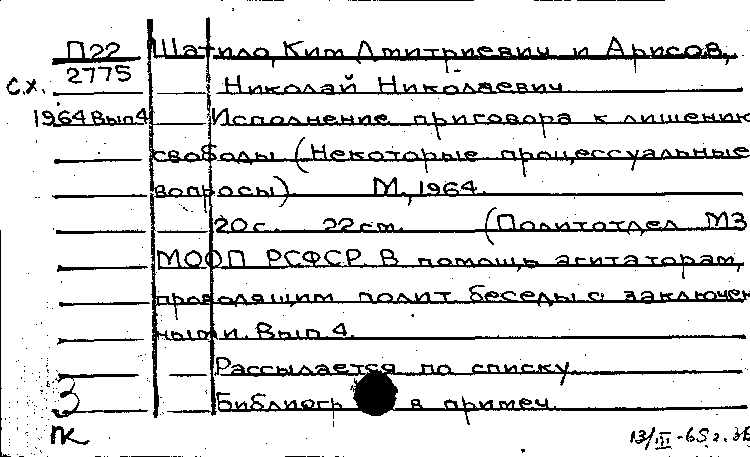 П22 Шатило, Ким Дмитриевич и Арисов,
2775
с.х. Николай Николаевич
1964 Вып4 Исполнение приговора к лишению
свободы (Некоторые процессуальные
вопросы). М., 1964.
20с. 22см. (Политотдел МЗ
МООП РСФСР. В помощь агитаторам,
проводящим полит. беседы с заключен
ными. Вып. 4.
Рассылается по списку
3 Библиогр в примеч
ПК 13/III-65г.